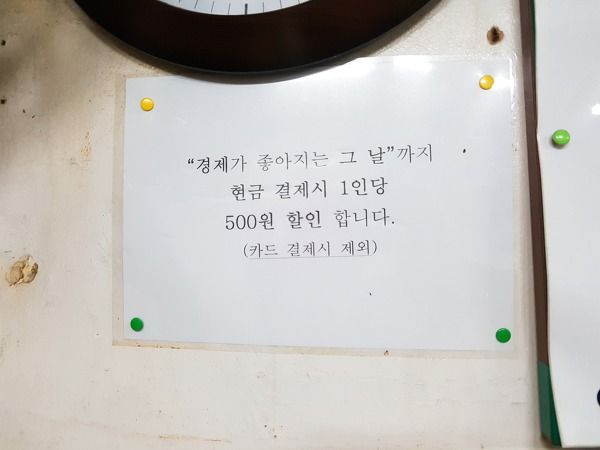 “경제가 좋아지는 그 날”까지
현금 결제시 1인당
500원 할인 합니다.
(카드 결제시 제외)